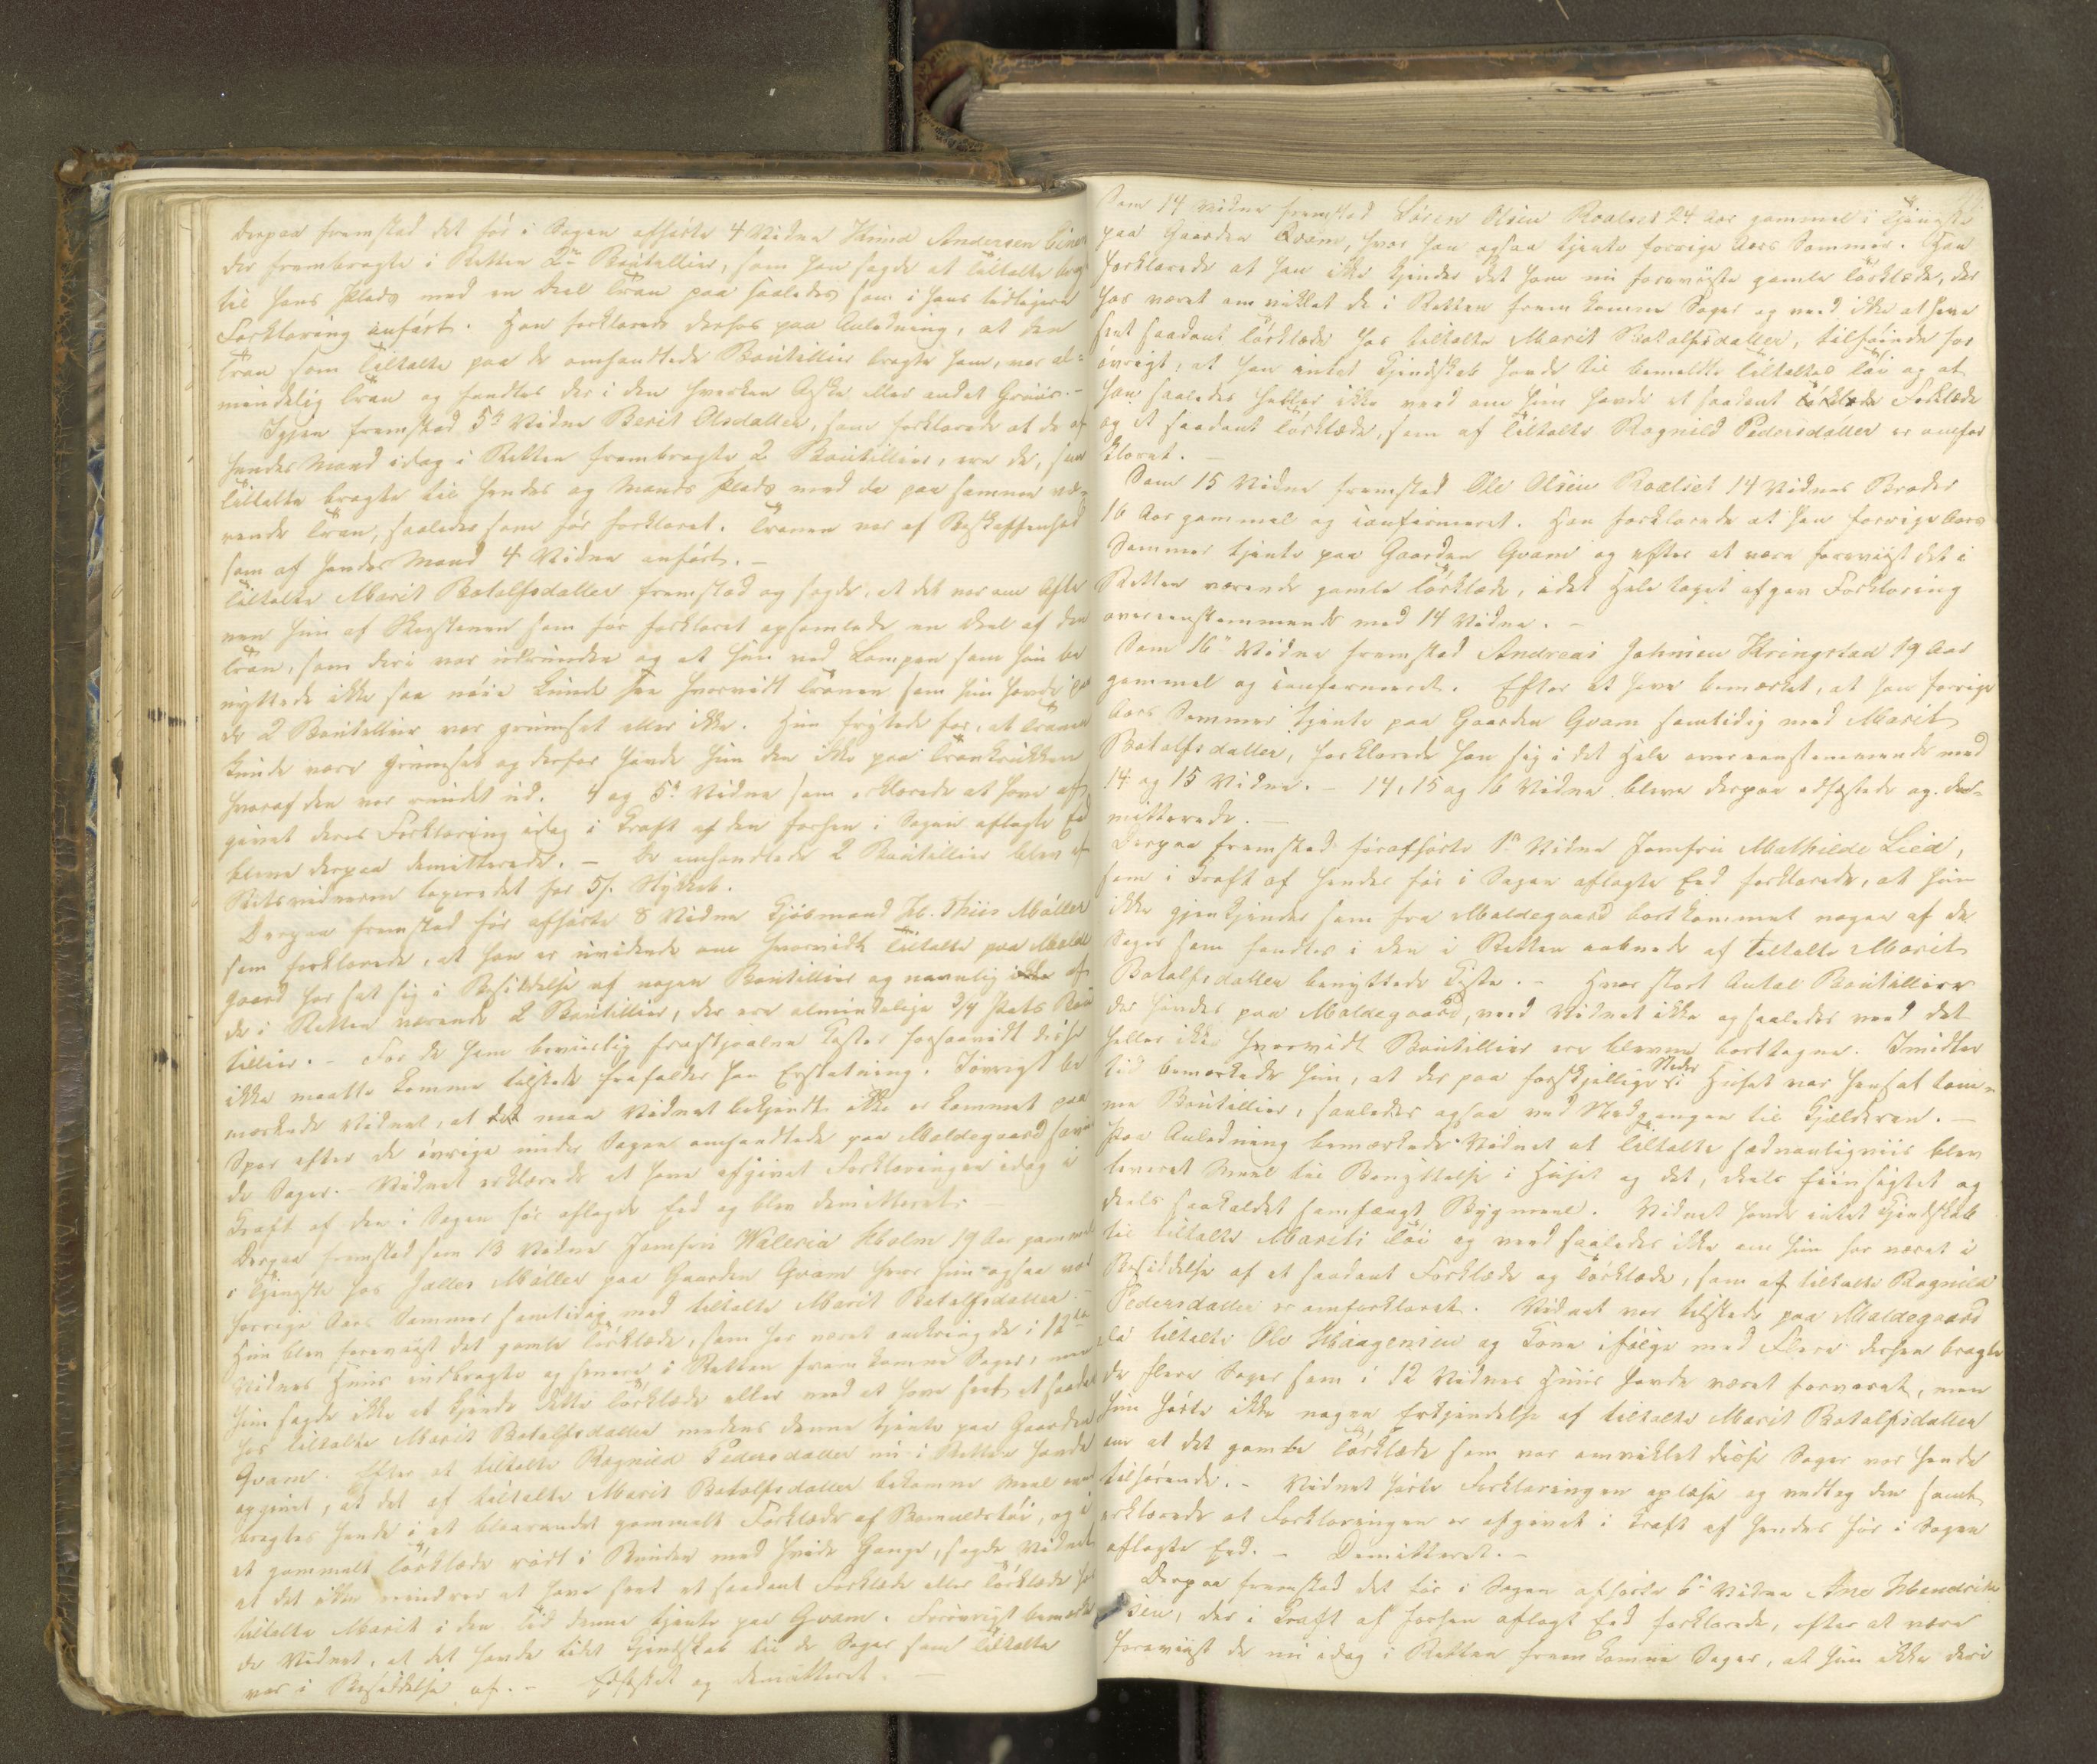 Derpaa fremstod det før i Sagen afhørte 4 Vidne Knud Andersen Einen
der frembragte i Retten 2de Boutellier, som han sagde at Tiltalte bragte
til hans Plads med en Deel Tran paa saaledes som i hans tidligere
Forklaring anført. Han forklarede derhos paa Anledning, at den
Tran som Tiltalte paa de omhandlede Boutellier bragte ham, var al-
mindelig Tran og fandtes der i den hverken Aske eller andet Gruus.-
Igjen fremstod 5te Vidne Berit Olsdatter, som forklarede at de af
hendes Mand idag i Retten frembragte 2 Boutellier, ere de, som
Tiltalte bragte til hendes og Mands Plads med de paa samme væ-
rende Tran, saaledes som før forklaret. Tranen var af Beskaffenhed
som af hendes Mand 4 Vidne anført.-
Tiltalte Marit Botolfsdatter fremstod og sagde, at det var om Afte
nen hun af Skorstenen som før forklaret opsamlede en Deel af den
Tran, som deri var udrunden og at hun ved Lampen som hun be
nyttede ikke saa nøie kunde see hvorvidt Tranen som hun havde paa
de 2 Boutellier var grumset eller ikke. Hun frygtede for, at Tranen
kunde være grumset og derfor havde hun den ikke paa Trankrukken
hvoraf den var rundet ud. 4 og 5te Vidne som erklærede at have af
givet deres Forklaring idag i Kraft af den forhen i Sagen aflagte Eed
bleve derpaa demitterede.- De omhandlede 2 Boutellier blev af
Retsvidnerne taxeredet for 5 s. Stykket.
Derpaa fremstod før afhørte 8 Vidne Kjøbmand H. Thiis Møller
som forklarede, at han er uvidende om hvorvidt Tiltalte paa Molde
gaard har sat sig i Besiddelse af nogen Boutellier og navnlig ikke af
de i Retten værende 2 Boutellier, der ere almindelige 3/4 Pots Bou
tellier.- For de ham beviislig frastjaalne Koster forsaavidt disse
ikke maatte komme tilstede frafalder han Erstatning. Iøvrigt be
mærkede Vidnet, at det maa Vidnet bekjendt ikke er kommet paa
Spor efter de øvrige under Sagen omhandlede paa Moldegaard savne
de Sager.- Vidnet erklærede at have afgivet Forklaringen idag i
Kraft af den i Sagen før aflagde Eed og blev demitteret.-
Derpaa fremstod som 13 Vidne Jomfru Waleria Holm 19 Aar gammel
i Tjeneste hos Jælles Møller paa Gaarden Qvam hvor hun ogsaa var
forrige Aars Sommer samtidig med tiltalte Marit Botolfsdatter.-
Hun blev foreviist det gamle Tørklæde, som har været omkring de i 12te
Vidnes Huus indbragte og senere i Retten fremkomne Sager, men
hun sagde ikke at kjende dette Tørklæde eller med at have seet et saadant
hos tiltalte Marit Botolfsdatter medens denne tjente paa Gaarden
Qvam. Efter at tiltalte Ragnild Pedersdatter nu i Retten havde
opgivet, at det af tiltalte Marit Botolfsdatter bekomne Meel var
bragtes hende i et blaarandet gammelt Forklæde af Bomuldstøi, og i
et gammelt Tørklæde rødt i Bunden med hvide Gange, sagde Vidnet
at det ikke mindes at have seet et saadant Forklæde eller Tørklæde hos
tiltalte Marit i den Tid denne tjente paa Qvam. Forøvrigt bemærke
de Vidnet, at det havde lidet Kjendskab til de Sager som Tiltalte
var i Besiddelse af.- Edfæstet og demitteret.-
Som 14 Vidne fremstod Søren Olsen Roalset 24 Aar gammel i Tjeneste
paa Gaarden Qvam, hvor han ogsaa tjente forrige Aars Sommer. Han
forklarede at han ikke kjender det ham nu foreviiste gamle Tørklæde, der
har været omviklet de i Retten fremkomne Sager og veed ikke at have
seet saadant Tørklæde hos tiltalte Marit Botolfsdatter, tilføiende for
øvrigt, at han intet Kjendskab havde til bemeldte Tiltaltes Tøi og at
han saaledes heller ikke veed om hun havde et saadant Forklæde
og et saadant Tørklæde, som af Tiltalte Ragnild Pedersdatter er omfor
klaret.-
Som 15 Vidne fremstod Ole Olsen Roalset 14 Vidnes Broder
16 Aar gammel og confirmeret. Han forklarede at han forrige Aars
Sommer tjente paa Gaarden Qvam og efter at være foreviist det i
Retten værende gamle Tørklæde, i det Hele taget afgav Forklaring
overeenstemmende med 14 Vidne.-
Som 16de Vidne fremstod Andreas Johnsen Kringstad 19 Aar
gammel og confirmeret. Efter at have bemærket, at han forrige
Aars Sommer tjente paa Gaarden Qvam samtidig med Marit
Botolfsdatter, forklarede han sig i det Hele overeenstemmende med
14 og 15 Vidne.- 14, 15 og 16 Vidne bleve derpaa edfæstede og de-
mitterede.-
Derpaa fremstod førafhørte 1ste Vidne Jomfru Mathilde Lied,
som i Kraft af hendes før i Sagen aflagte Eed forklarede, at hun
ikke gjenkjender som fra Moldegaard bortkommet nogen af de
Sager som fandtes i den i Retten aabnede af tiltalte Marit
Botolfsdatter benyttede Kiste.- Hvor stort Antal Boutellier
der havdes paa Moldegaard, veed Vidnet ikke og saaledes veed det
heller ikke hvorvidt Boutellier ere blevne borttagne. Imidler
tid bemærkede hun, at der paa forskjellige Steder i Huset var hensat tom-
me Boutellier, saaledes ogsaa ved Nedgangen til Kjelderen.-
Paa Anledning bemærkede Vidnet at Tiltalte sædvanligviis blev
leveret Meel til Benyttelse i Huset og det, deels fiinsigtet og
deels saakaldet samfængt Bygmeel. Vidnet havde intet Kjendskab
til tiltalte Marits Tøi og veed saaledes ikke om hun har været i
Besiddelse af et saadant Forklæde og Tørklæde, som af tiltalte Ragnild
Pedersdatter er omforklaret. Vidnet var tilstede paa Moldegaard
da tiltalte Ole Haagensen og Kone ifølge med Flere derhen bragte
de flere Sager som i 12 Vidnes Huus havde været forvaret, men
hun hørte ikke nogen Erkjendelse af tiltalte Marit Botolfsdatter
om at det gamle Tørklæde som var omviklet disse Sager var hende
tilhørende.- Vidnet hørte Forklaringen oplæse og vedtog den samt
erklærede at Forklaringen er afgivet i Kraft af hendes før i Sagen
aflagte Eed.- Demitteret.-
Derpaa fremstod det før i Sagen afhørte 6te Vidne Ane Hendrik
sen, der i Kraft af forhen aflagt Eed forklarede, efter at være
foreviist de nu idag i Retten fremkomne Sager, at hun ikke deri